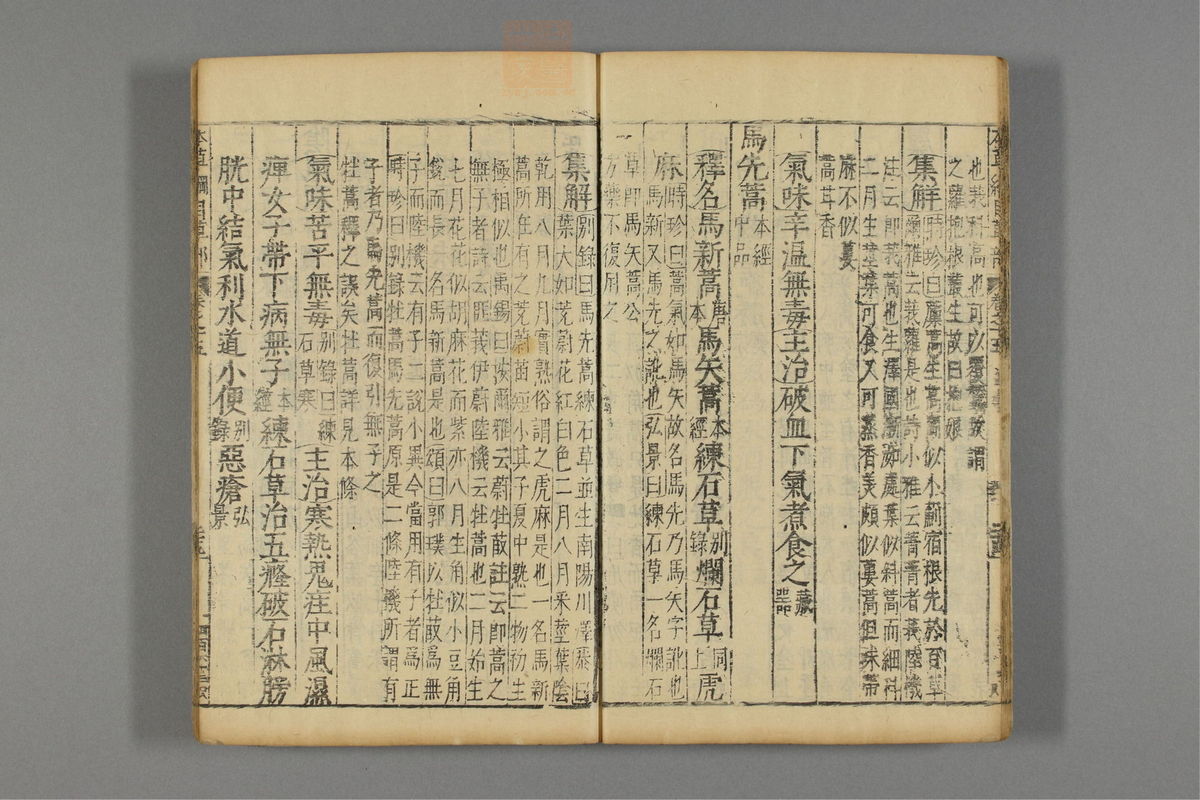 也莪科高也可以覆蠶故謂
之蘿抱根叢生故曰抱娘
集解時珍曰䕲蒿生高岡似小薊宿根先於百草
爾雅云莪蘿是也詩小雅云菁菁者莪陸機
注云即莪蒿也生澤國漸洳處葉似斜蒿而細科
二月生莖葉可食又可蒸香美頗似蔞蒿但味帶
麻不似蔞
蒿甘香
氣味辛温無毒主治破血下氣煮食之藏器
馬先蒿本經中品
釋名馬新蒿唐本馬矢蒿本經練石草別錄爛石草同上虎
麻時珍曰蒿氣如馬矢故名馬先乃馬矢字訛也
馬新又馬先之訛也弘景曰練石草一名爛石
草即馬矢蒿公
方藥不復用之
集解別錄曰馬先蒿練石草並生南陽川澤恭曰
葉大如茺蔚花紅白色二月八月采莖葉陰
乾用八月九月實熟俗謂之虎麻是也一名馬新
蒿所在有之茺蔚苗短小其子夏中熟二物初生
極相似也禹錫曰按爾雅云蔚牡菣註云即蒿之
無子者詩云匪莪伊蔚陸機云牡蒿也二月始生
七月花花似胡麻花而紫亦八月生角似小豆角
銳而長一名馬新蒿是也頌曰郭璞以牡菣為無
子而陸機云有子二說小異今當用有子者為正
時珍曰別錄牡蒿馬先蒿原是二條陸機所謂有
子者乃馬先蒿而復引無子之
牡蒿釋之誤矣牡蒿詳見本條
氣味苦平無毒別錄曰練石草寒主治寒熱鬼疰中風濕
痺女子帶下病無子本經練石草治五癃破石淋膀
胱中結氣利水道小便別錄惡瘡弘景